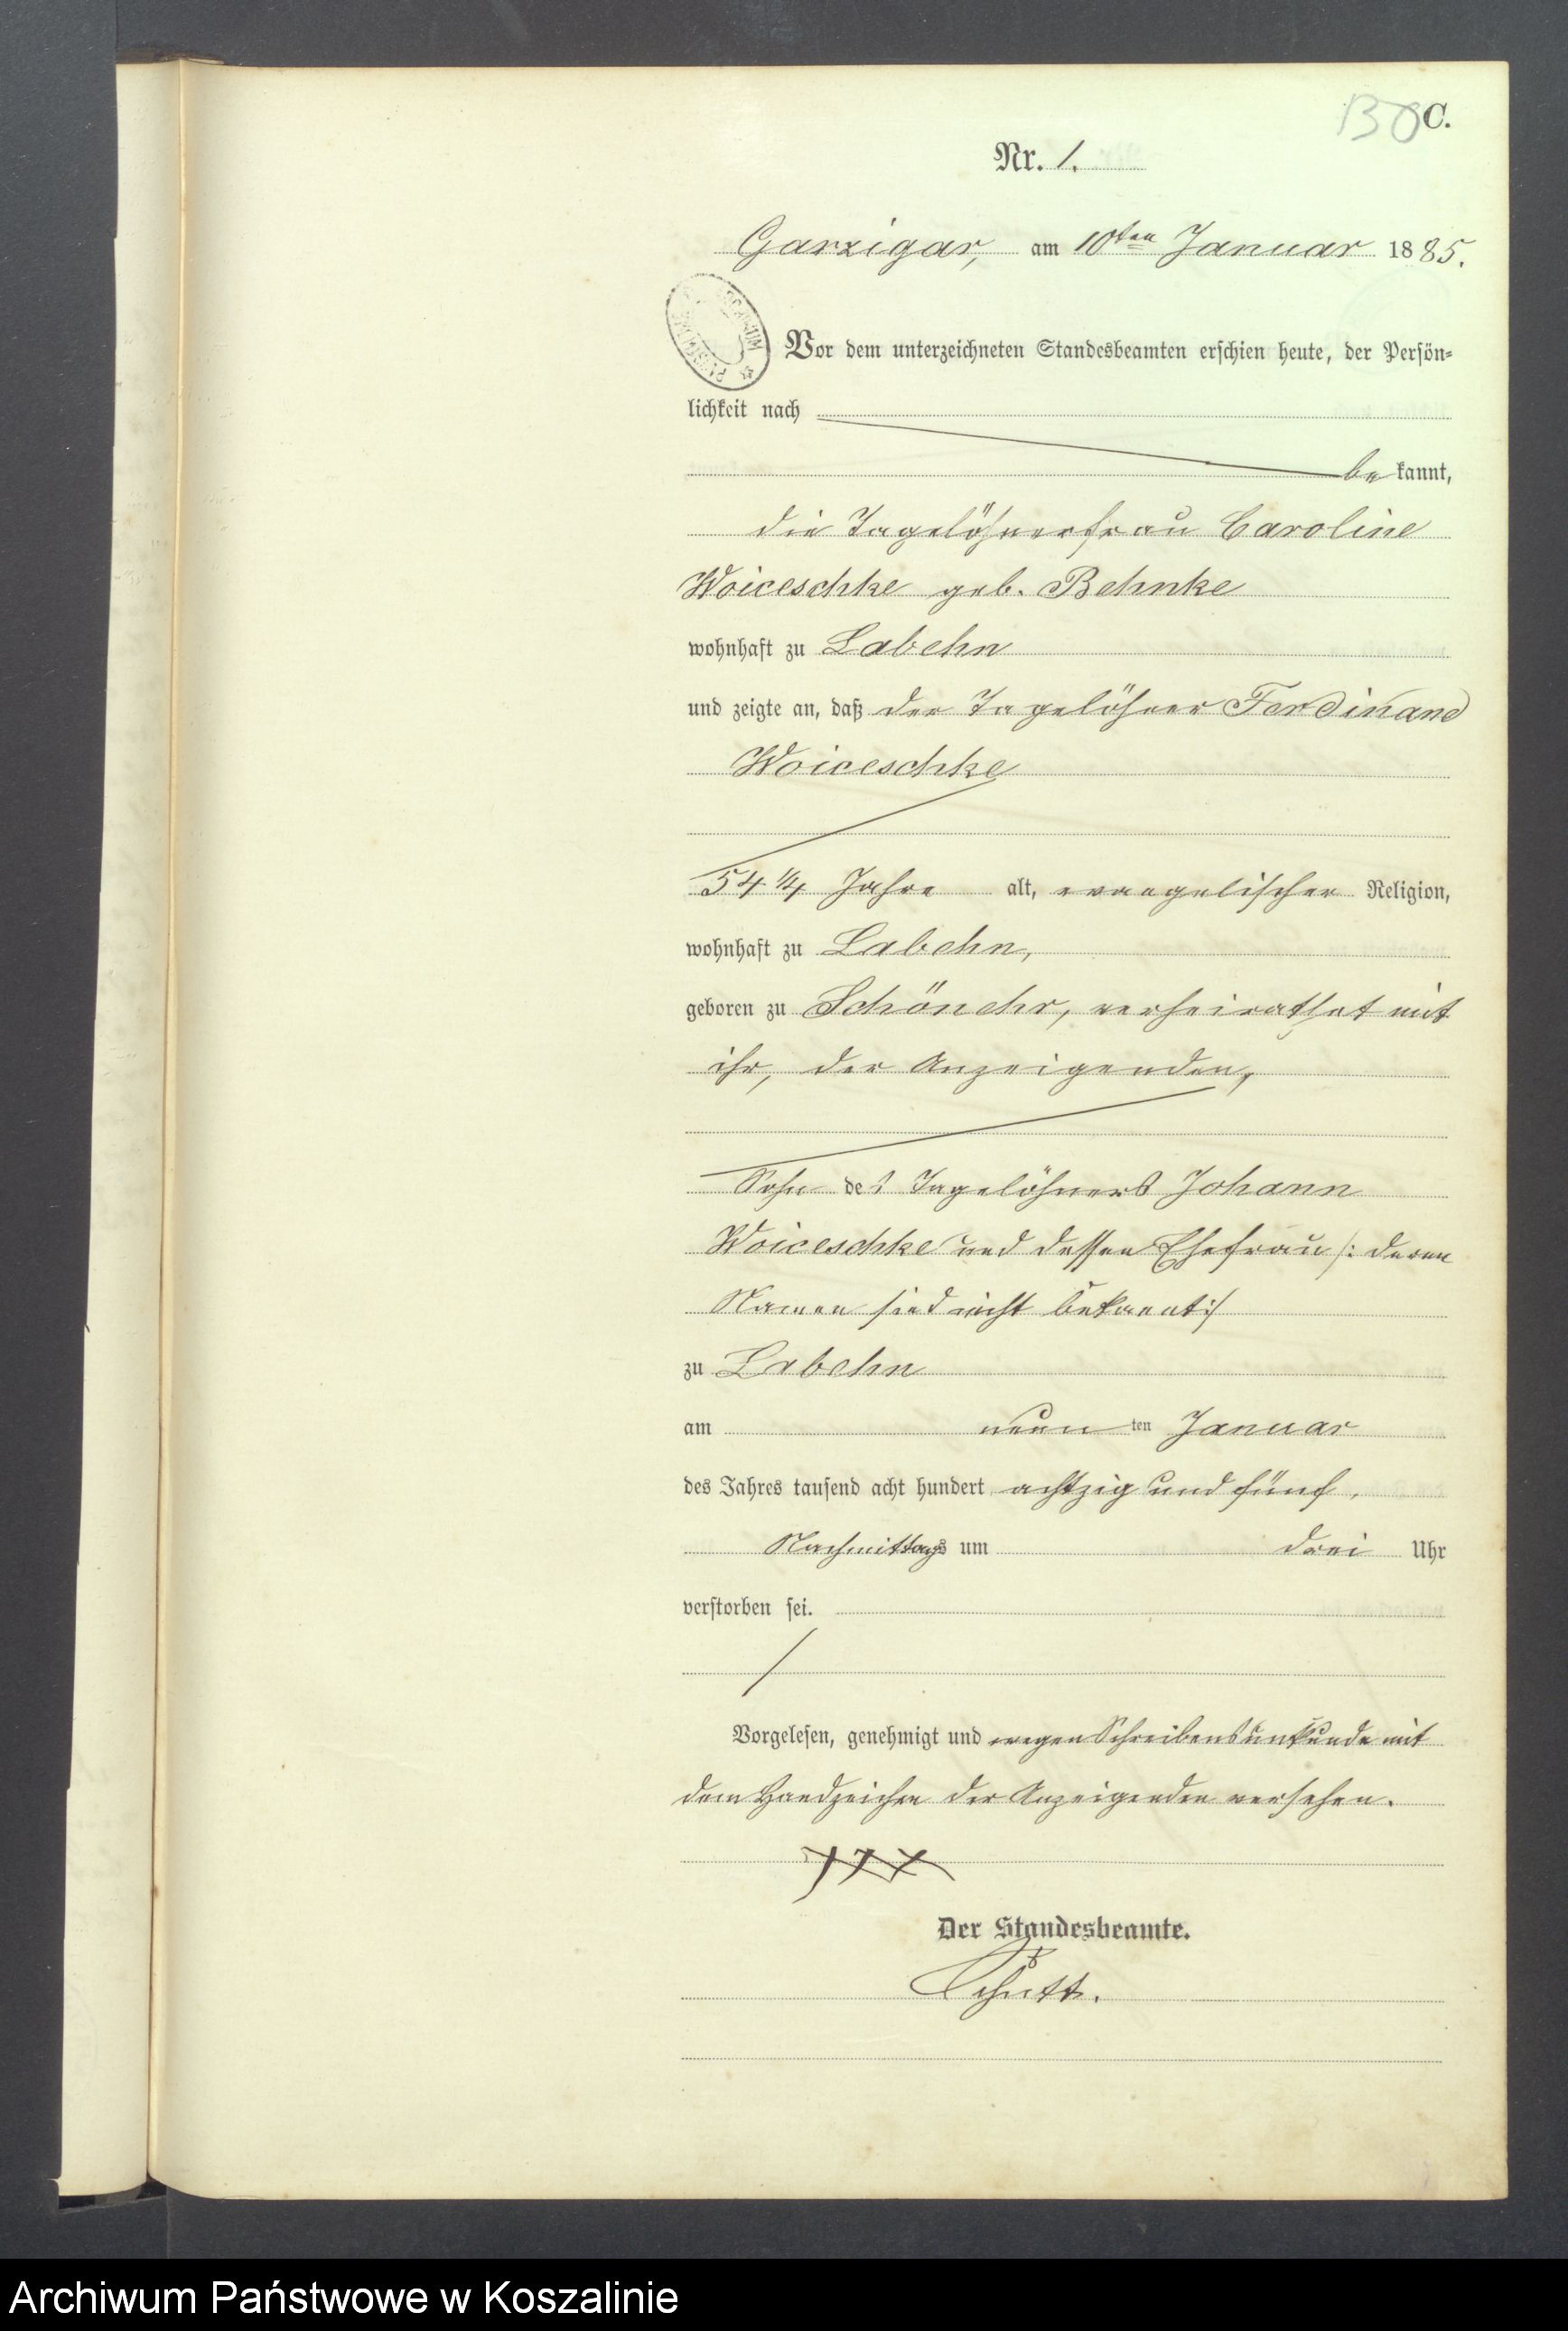 130 C.
Nr. 1.
Garzigar, am 10ten Januar 1885.
Vor dem unterzeichneten Standesbeamten erschien heute, der Persön-
lichkeit nach
be kannt,
die Tagelöhnerfrau Caroline
Woiceschke geb. Behnke
wohnhaft zu Labehn
und zeigte an, daß der Tagelöhner Ferdinand
Woiceschke
54 1/4 Jahre alt, evangelischer Religion,
wohnhaft zu Labehn,
geboren zu Schönehr, verheirathet mit
ihr, der Anzeigenden,
Sohn des Tagelöhners Johann
Woiceschke und dessen Ehefrau /: deren
Namen sind nicht bekannt :/
zu Labehn
am neun ten Januar
des Jahres tausend acht hundert achtzig und fünf,
Nachmittags um drei Uhr
verstorben sei.
Vorgelesen, genehmigt und wegen Schreibensunkunde mit
dem Handzeichen der Anzeigenden versehen.
XXX
Der Standesbeamte.
Archiwum Państwowe w Koszalinie